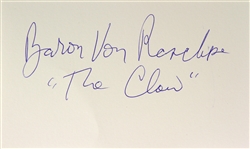 Baron Von Raschke
"The Claw"